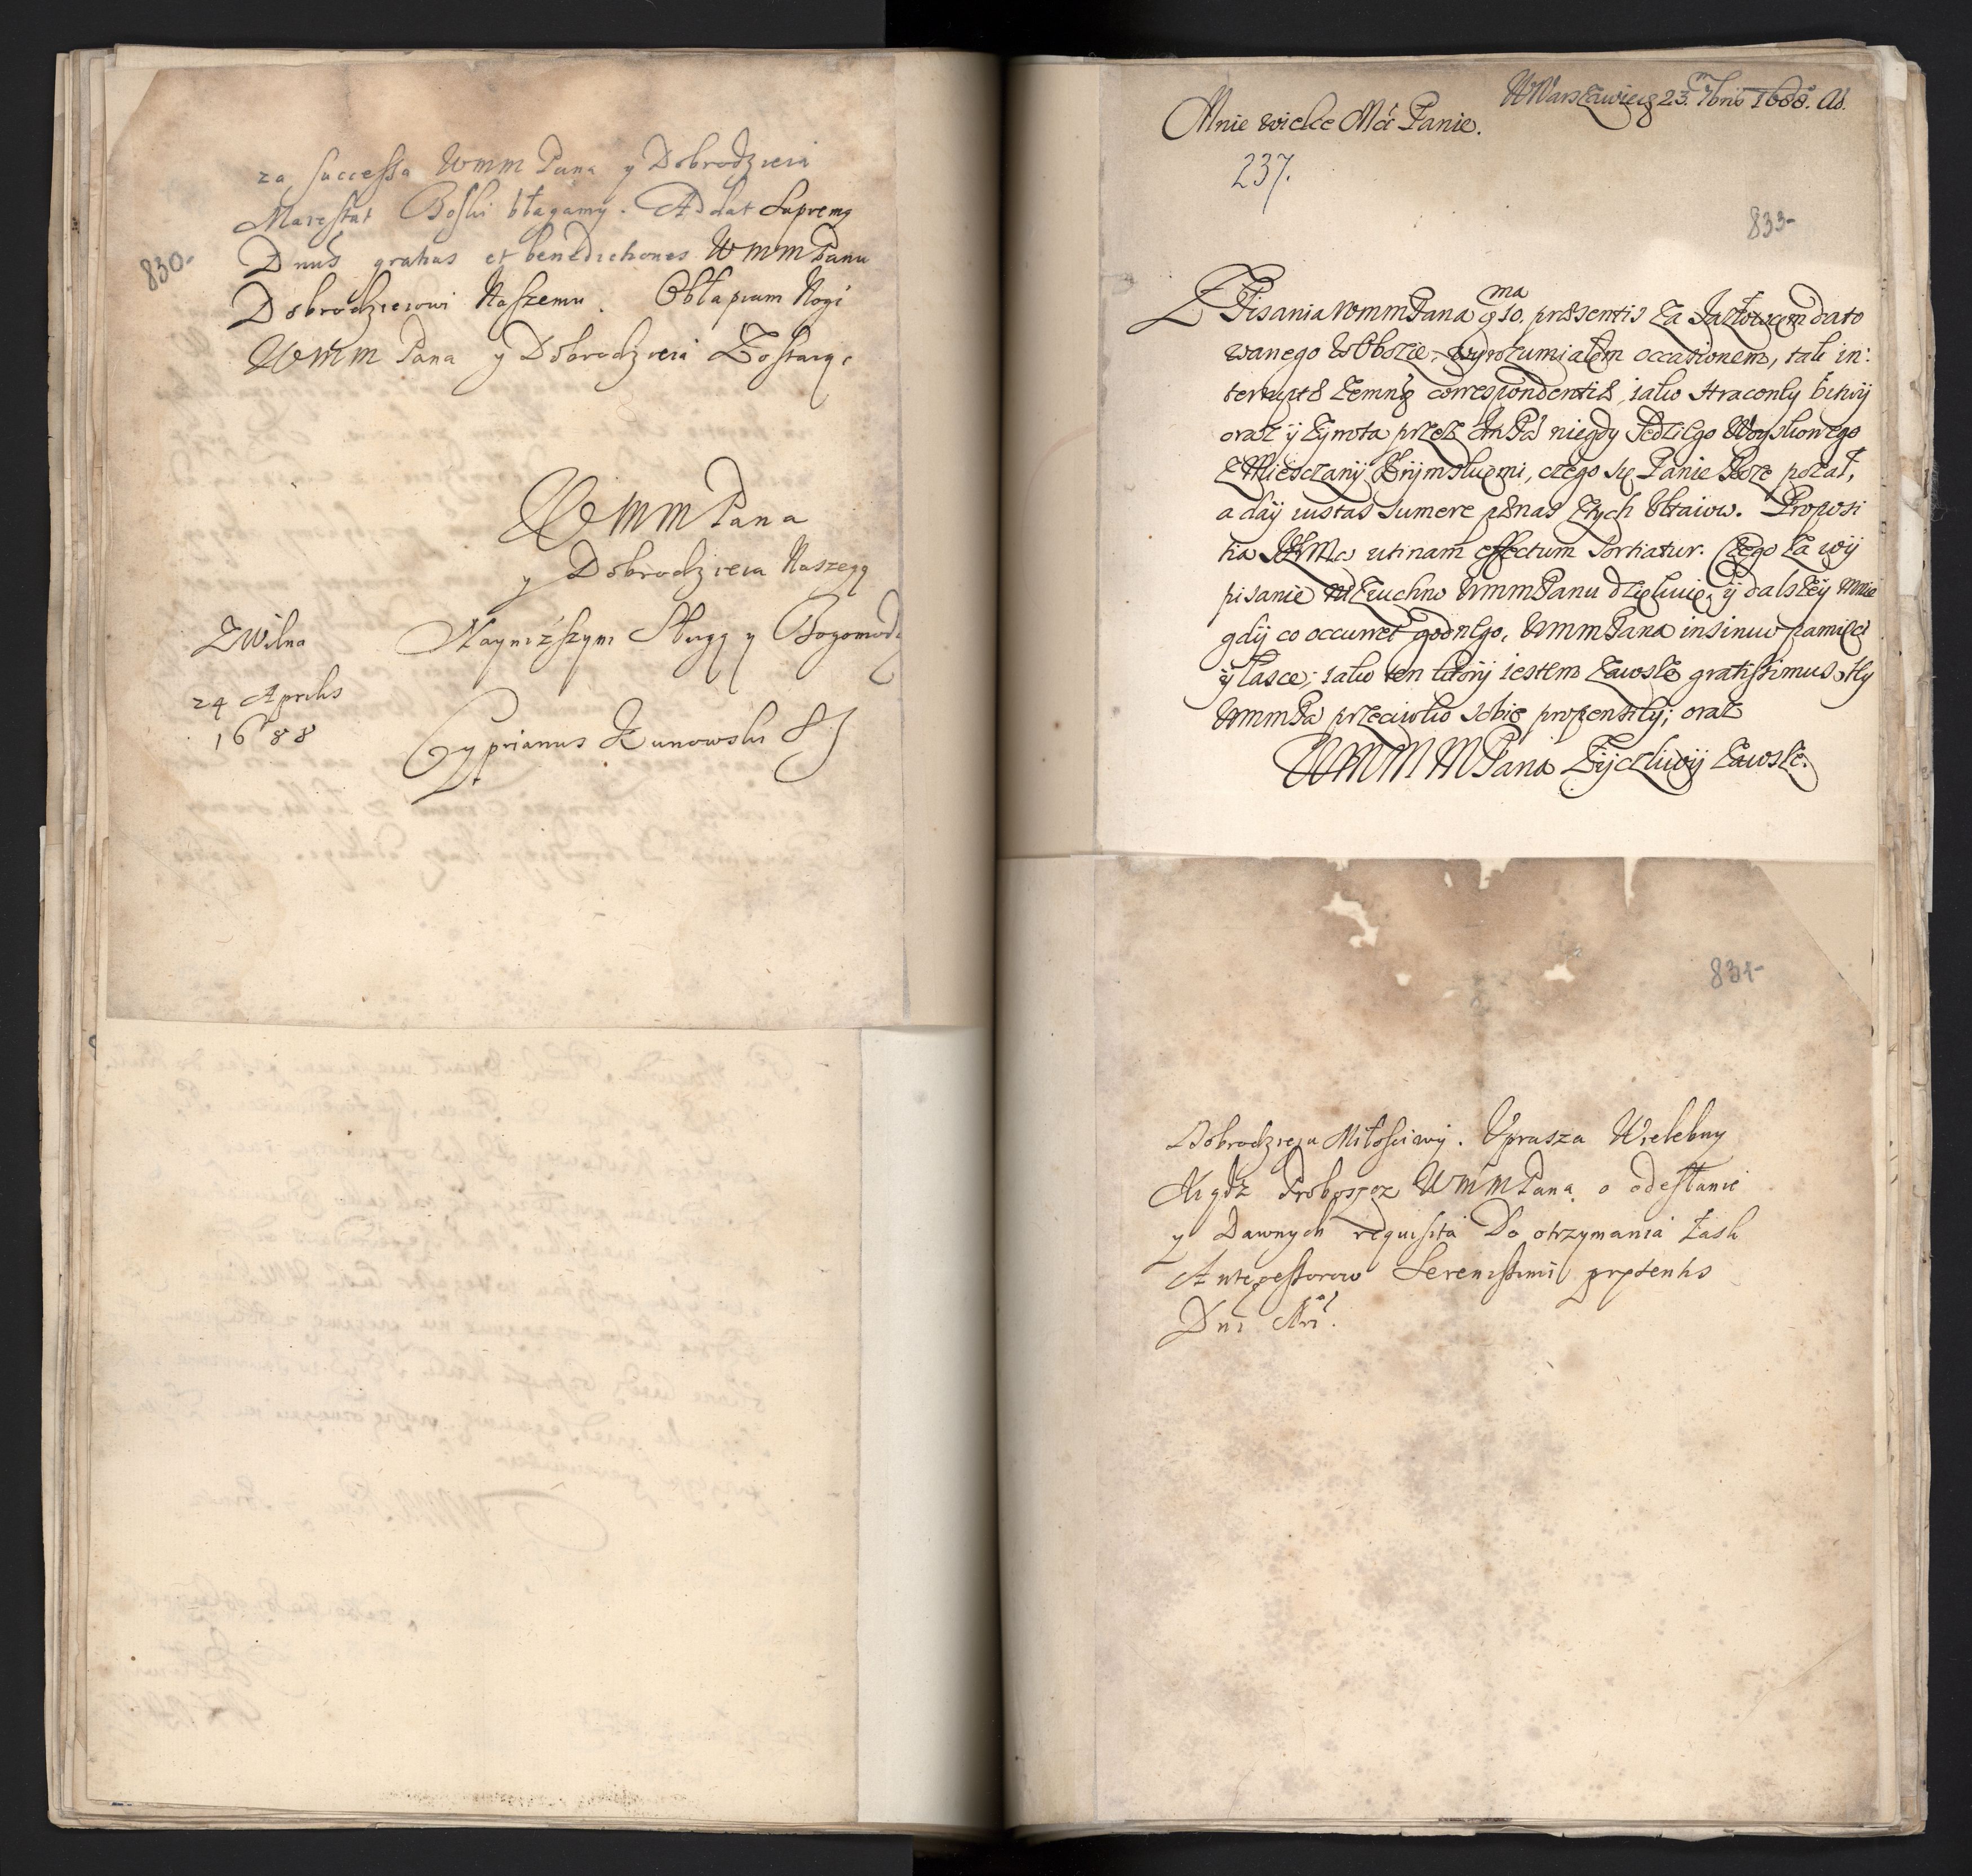 830-
za successa WMM Pana y Dobrodzieia
Maiestat Boski błagamy. Addat Supremq
Dnus gratias et benedictiones WMMPanu
Dobrodzieiowi Naszemu. Obłapiam Nogi
WMM Pana y Dobrodzieia Zostaiąc
WMM Pana
y Dobrodzieia Naszego
Nayniższym Sługą y Bogomodlą
ZWilna
24 Aprilis
1688
Cyprianus Kunowski SJ
WWarszawie 23. 7bris 1688. Ad.
Mnie wielce Mći Panie.
237.
833-
Z Pisania WmmPana 10.ma præsentis za Jazłowcem dato
wanego WObozie, wyrozumiałem occasionem, tak in:
terruptæ zemną correspondentiæ, iako straconey bitwij
oraz ÿ zywota przez niegdy Woyskowego
ZMiesczanÿ Krÿmskiemi, czego się Panie Boze pozal,
a daÿ iustas sumere pœnas Złych. Proposi
tia utinam effectum sortiatur. Czego za wÿ
pisanie WmmPanu dziękuię, ÿ dalszeÿ mnie
gdÿ co occurret godnego, WmmPana insinuo pamięci
ÿ łasce; iako ten ktorÿ iestem zawsze gratissimus
WmmPa przeciwko sobie propensiÿ; oraz
WMMMPana Zÿczliwÿ zawsze.
831-
Dobrodzieju Miłościwy. Uprasza Wielebny
Xiądz Proboszcz WMMPana o odesłanie
y Dawnych requisita Do otrzymania łask
Antecessorow Serenissimi præsentis
Dni Nri.